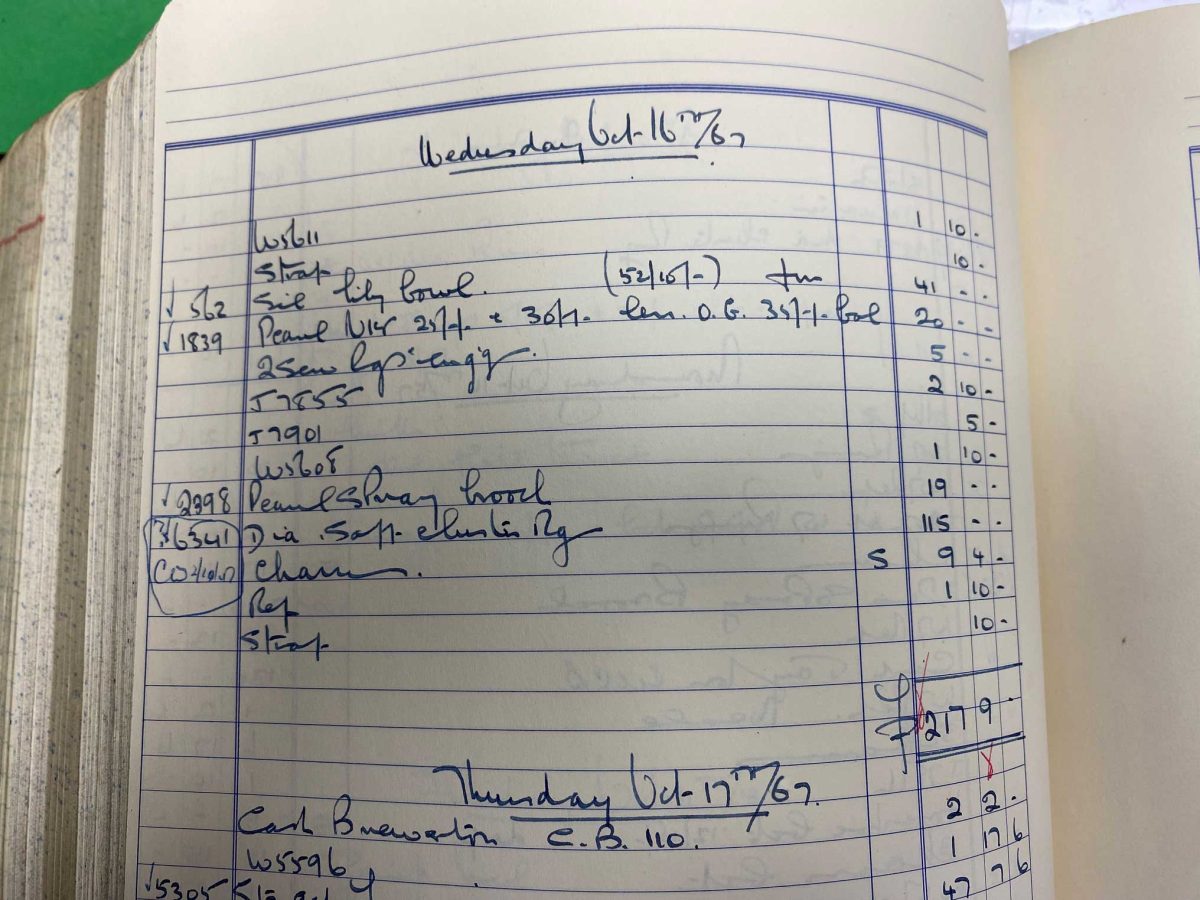 Wednesday Oct-16th/67.
W5611 1 10 -
Strap 10 -
√ 562 Sil lily bowl. (52/10/-) 41 - -
√ 1839 Pearl N/k 25/-/- + 30/-/- less O.G. 35/-/- bal 20 - -
2 Sew Rgs eng'g. 5 - -
J7855 2 10 -
J7901 5 -
W5608 1 10 -
√ 2398 Pearl Spray brooch 19 - -
36341 Dia Sapp. cluster Rg 115 - -
Charm. S 9 4 -
Rep 1 10 -
Strap 10 -
£ 217 9 -
Thursday Oct-17th/67.
Cash C.B. 110. 2 2 -
W5596 1 17 6
√ 5305 47 7 6